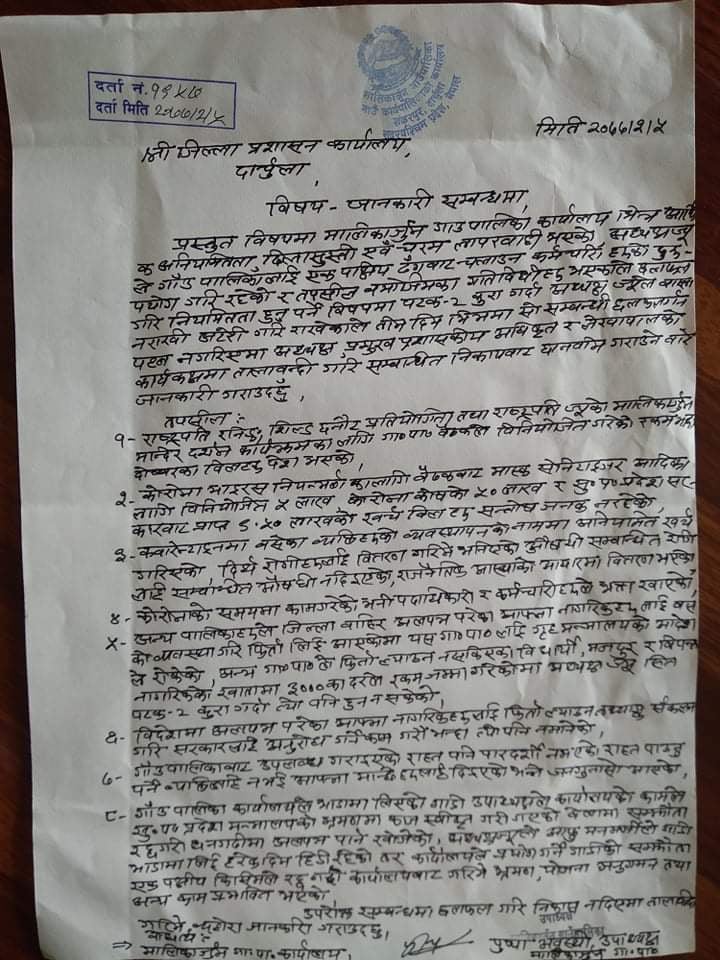 दर्ता नं.
दर्ता मिति २०७७/२/५
मालिकार्जुन गाउँपालिका
गाउँ कार्यपालिकाको कार्यालय
सुदूरपश्चिम प्रदेश, नेपाल
मिति २०७७/२/५
श्री जिल्ला प्रशासन कार्यालय,
दार्चुला,
विषय - जानकारी सम्बन्धमा,
प्रस्तुत विषयमा मालिकार्जुन गाउपालिका कार्यालय भित्र
क अनियमितता ढिलासुस्ती एवं चरम लापरवाही भएको अध्यक्षज्यू
ले गाँउ पालिकालाई एक पक्षिय ढंगबाट कर्मचारी
र तपसील बमोजिमका गतिविधीहरु भएकोले छलफल
गरि नियमितता हुनु पर्ने विषयमा पटक-२ कुरा गर्दा अध्यक्ष ज्यूले वास्ता
नराखी अटेरी गरि राखेकाले तीन दिन भित्रमा सो सम्बन्धी छलफल
पहल नगरिएमा अध्यक्ष, प्रमुख प्रशासकीय अधिकृत र लेखापालको
कार्यकक्षमा तालाबन्दी गरि सम्बन्धित निकायबाट छानविन गराउने बारे
जानकारी गराउदछु,
तपसील :-
१- राष्ट्रपति रनिङ शिल्ड प्रतियोगिता तथा राष्ट्रपति ज्यूको मालिकार्जुन
मन्दिर दर्शन कार्यक्रमका लागि गा०पा० बैठकले विनियोजित गरेको रकम
दोब्बरका बिलहरु पेश भएको,
२- कोरोना भाइरस नियन्त्रणका लागि बैठकबाट मास्क सेनिटाइजर आदिका
लागि विनियोजित ५ लाख कोरोना कोषका ५० लाख र सु०प० प्रदेश सर-
कारबाट प्राप्त लाखको खर्च बिल हरु सन्तोष जनक नरहेको,
३- क्वारेन्टाइनमा बसेका व्यक्तिहरुको व्यवस्थापनको नाममा अनियमित खर्च
गरिएको दिर्घ रोगीहरुलाई वितरण गरिने भनिएको औषधी सम्बन्धित रोगी
लाई सम्बन्धित औषधी नदिइएको राजनैतिक आस्थाको आधारमा वितरण भएको
४- कोरोनाको समयमा कामगरेको भनी पदाधिकारी र कर्मचारीहरुले भत्ता खाएको,
५- अन्य पालिकाहरुले जिल्ला बाहिर अलपत्र परेका आफ्ना नागरिकहरुलाई बस
को व्यवस्था गरि फिर्ता लिई आएकोमा यस गा०पा० लाई गृह मन्त्रालयको आदेश
ले रोकेको, अन्य गा०पा०ले फिर्ता ल्याउन नसकिएका विद्यार्थी, मजदुर र विपन्न
नागरिकका खातामा ३००० का दरले रकम जम्मा गरेकोमा अध्यक्ष ज्यू सित
पटक-२ कुरा गर्दा त्यो पनि हुन नसकेको,
६- विदेशमा अलपत्र परेका आफ्ना नागरिकहरुलाई फिर्ता ल्याउन
गरि सरकारलाई अनुरोध गर्ने काम गरौं भन्दा त्यो पनि नमानेको,
७- गाँउपालिकाबाट उपलब्ध गराइएको राहत पनि पारदर्शी नभएको, राहत पाउनु
पर्ने व्यक्तिलाई नभई आफ्ना मान्छेहरुलाई दिइएको भन्ने जनगुनासो आएको,
८- गाँउ पालिका कार्यालयले भाडामा लिएको गाडी उपाध्यक्षले कार्यालयको कामले
सु०प० प्रदेश मन्त्रालयको भ्रमणमा काज स्वीकृत गरी गएको बेलामा सम्झौता
रद्द गरी धनगढीमा अलपत्र पार्न खोजेको, अध्यक्षज्यूले आफू मनमर्जीले गाडी
भाडामा लिई हरेक दिन हिंडी रहेको तर कार्यालयले प्रयोग गर्ने गाडीको सम्झौता
एक पक्षीय किसिमले रद्द गर्दा कार्यालयबाट गरिने भ्रमण, योजना अनुगमन तथा
अन्य काम प्रभावित भएको,
उपरोक्त सम्बन्धमा छलफल गरि निकास नदिएमा तालाबन्दि
गरिने व्यहोरा जानकारी गराउदछु,
बोधार्थ :-
⇒ मालिकार्जुन गा.पा. कार्यालय,
पुष्पा अवस्थी, उपाध्यक्ष
मालिकार्जुन गा० पा०